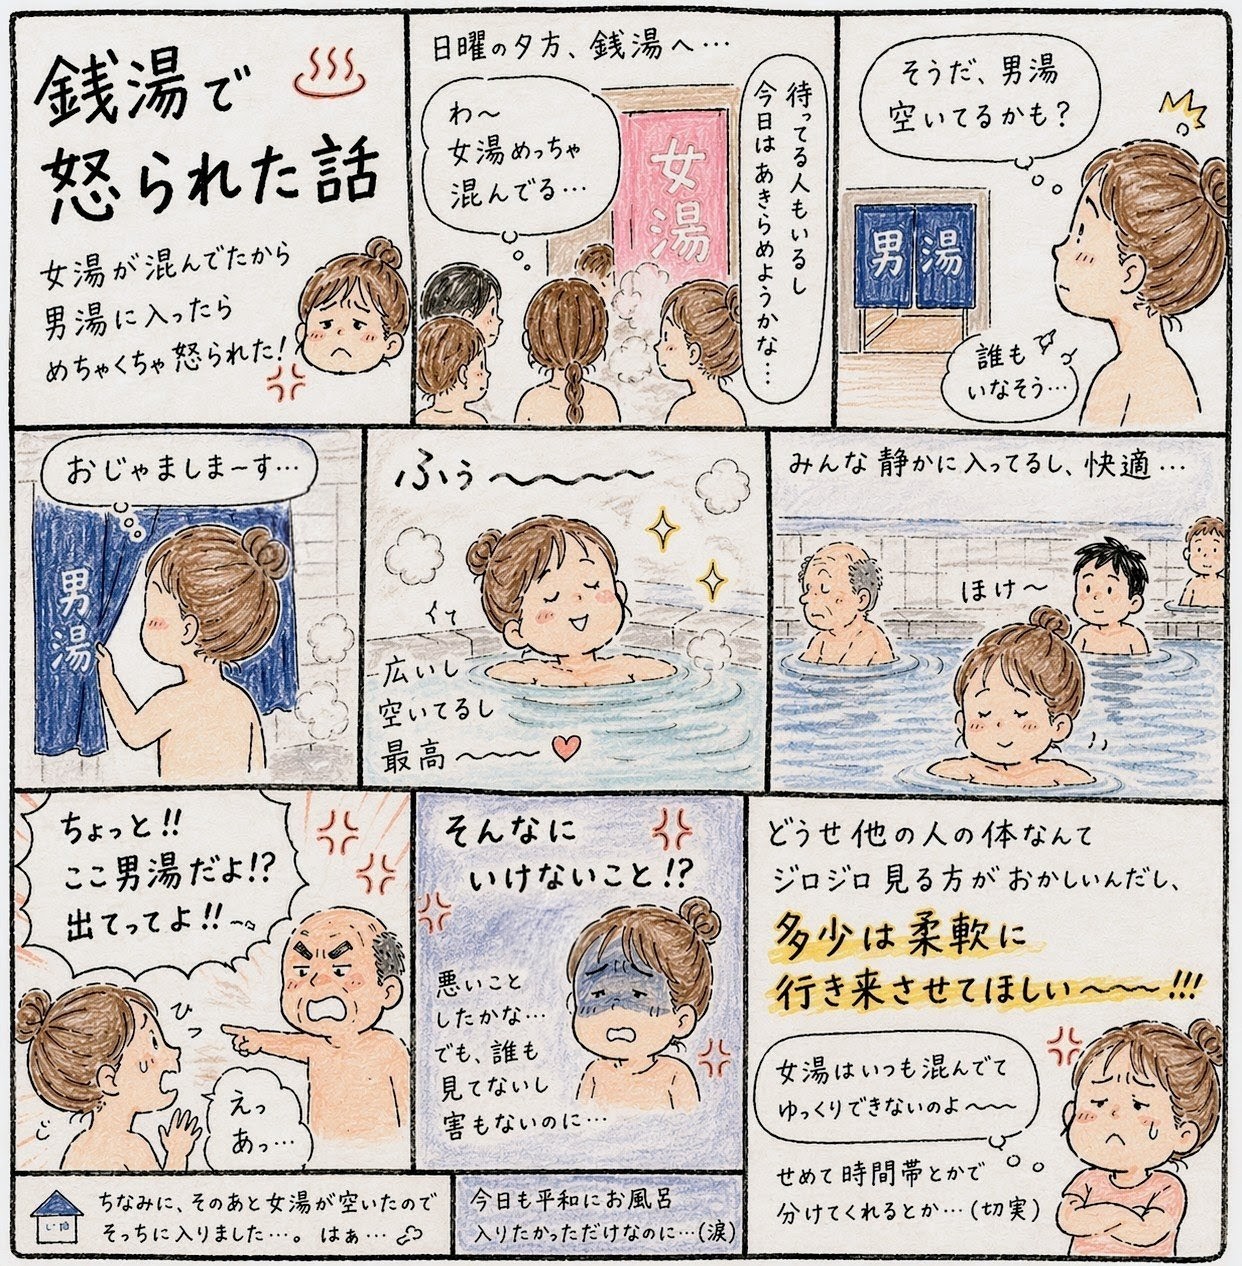 銭湯で
怒られた話
女湯が混んでたから
男湯に入ったら
めちゃくちゃ怒られた!
日曜の夕方、銭湯へ…
わ〜
女湯めっちゃ
混んでる…
女湯
待ってる人もいるし
今日はあきらめようかな…
そうだ、男湯
空いてるかも?
男湯
誰も
いなそう…
おじゃましま〜す…
男湯
ふぅ〜〜〜〜
広いし
空いてるし
最高〜〜〜♥
みんな静かに入ってるし、快適…
ほけ〜
ちょっと!!
ここ男湯だよ!?
出てってよ!!
ひっ
えっ
あっ…
そんなに
いけないこと!?
悪いこと
したかな…
でも、誰も
見てないし
害もないのに…
どうせ他の人の体なんて
ジロジロ見る方がおかしいんだし、
多少は柔軟に
行き来させてほしい〜〜〜!!!
女湯はいつも混んでて
ゆっくりできないのよ〜〜〜
せめて時間帯とかで
分けてくれるとか…(切実)
ちなみに、そのあと女湯が空いたので
そっちに入りました…。はぁ…
今日も平和にお風呂
入りたかっただけなのに…(涙)